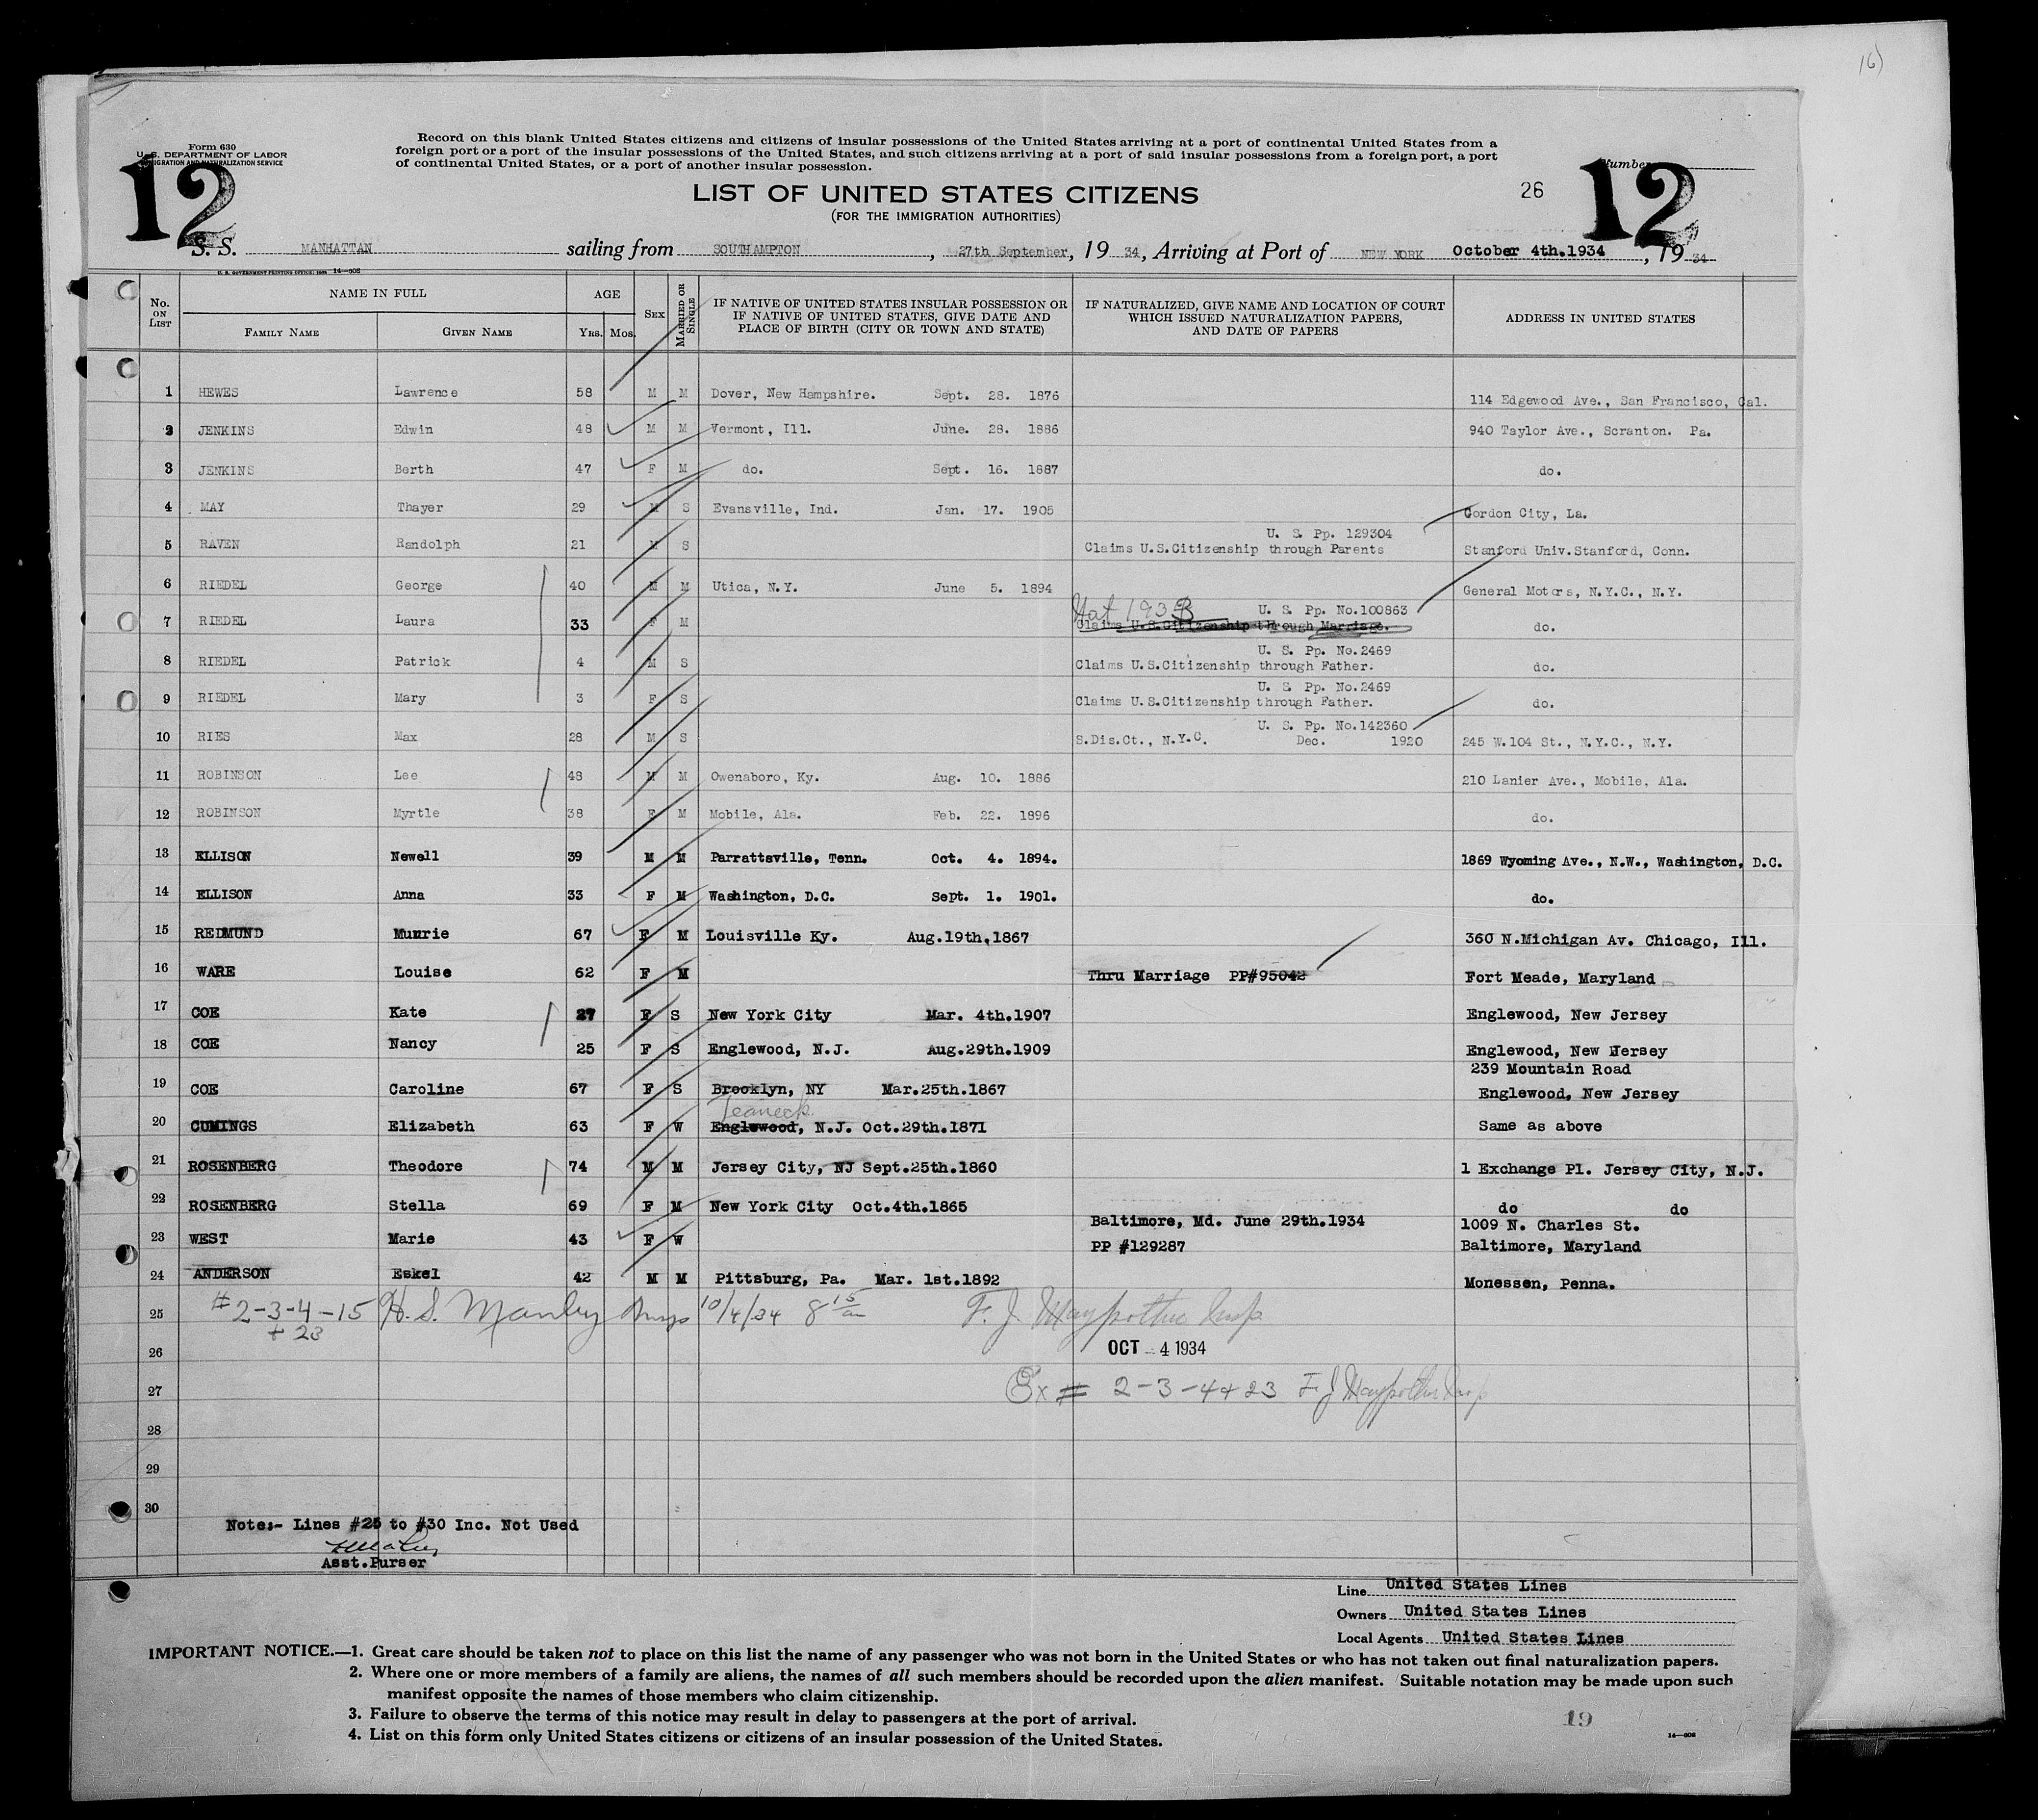 16)
Form 630
U. S. DEPARTMENT OF LABOR
IMMIGRATION AND NATURALIZATION SERVICE
Record on this blank United States citizens and citizens of insular possessions of the United States arriving at a port of continental United States from a
foreign port or a port of the insular possessions of the United States, and such citizens arriving at a port of said insular possessions from a foreign port, a port
of continental United States, or a port of another insular possession.
12
Number
12
LIST OF UNITED STATES CITIZENS
26
(FOR THE IMMIGRATION AUTHORITIES)
S. S. MANHATTAN sailing from SOUTHAMPTON, 27th September, 19 34, Arriving at Port of NEW YORK October 4th.1934, 19 34
U. S. GOVERNMENT PRINTING OFFICE: 14—808
No. ON LIST
NAME IN FULL
FAMILY NAME
GIVEN NAME
AGE
YRS. MOS.
SEX
MARRIED OR SINGLE
IF NATIVE OF UNITED STATES INSULAR POSSESSION OR
IF NATIVE OF UNITED STATES, GIVE DATE AND
PLACE OF BIRTH (CITY OR TOWN AND STATE)
IF NATURALIZED, GIVE NAME AND LOCATION OF COURT
WHICH ISSUED NATURALIZATION PAPERS,
AND DATE OF PAPERS
ADDRESS IN UNITED STATES
1 HEWES Lawrence 58 M M Dover, New Hampshire. Sept. 28. 1876 114 Edgewood Ave., San Francisco, Cal.
2 JENKINS Edwin 48 M M Vermont, Ill. June. 28. 1886 940 Taylor Ave., Scranton. Pa.
3 JENKINS Berth 47 F M do. Sept. 16. 1887 do.
4 MAY Thayer 29 M S Evansville, Ind. Jan. 17. 1905 Gordon City, La.
U. S. Pp. 129304
5 RAVEN Randolph 21 M S Claims U.S.Citizenship through Parents Stanford Univ.Stanford, Conn.
6 RIEDEL George 40 M M Utica, N.Y. June 5. 1894 General Motors, N.Y.C., N.Y.
U. S. Pp. No.100863
7 RIEDEL Laura 33 F M Claims U.S.Citizenship through Marriage. do.
U. S. Pp. No.2469
8 RIEDEL Patrick 4 M S Claims U.S.Citizenship through Father. do.
U. S. Pp. No.2469
9 RIEDEL Mary 3 F S Claims U.S.Citizenship through Father. do.
U. S. Pp. No.142360
10 RIES Max 28 M S S.Dis.Ct., N.Y.C. Dec. 1920 245 W.104 St., N.Y.C., N.Y.
11 ROBINSON Lee 48 M M Owenaboro, Ky. Aug. 10. 1886 210 Lanier Ave., Mobile, Ala.
12 ROBINSON Myrtle 38 F M Mobile, Ala. Feb. 22. 1896 do.
13 ELLISON Newell 39 M M Parrattsville, Tenn. Oct. 4. 1894. 1869 Wyoming Ave., N.W., Washington, D.C.
14 ELLISON Anna 33 F M Washington, D.C. Sept. 1. 1901. do.
15 REDMUND Munrie 67 F M Louisville Ky. Aug.19th,1867 360 N.Michigan Av. Chicago, Ill.
16 WARE Louise 62 F M Thru Marriage PP#95042 Fort Meade, Maryland
17 COE Kate 27 F S New York City Mar. 4th.1907 Englewood, New Jersey
18 COE Nancy 25 F S Englewood, N.J. Aug.29th.1909 Englewood, New Jersey
239 Mountain Road
19 COE Caroline 67 F S Brooklyn, NY Mar.25th.1867 Englewood, New Jersey
Teaneck
20 CUMINGS Elizabeth 63 F W Englewood, N.J. Oct.29th.1871 Same as above
21 ROSENBERG Theodore 74 M M Jersey City, NJ Sept.25th.1860 1 Exchange Pl. Jersey City, N.J.
22 ROSENBERG Stella 69 F M New York City Oct.4th.1865 do do
Baltimore, Md. June 29th.1934 1009 N. Charles St.
23 WEST Marie 43 F W PP #129287 Baltimore, Maryland
24 ANDERSON Eskel 42 M M Pittsburg, Pa. Mar. 1st.1892 Monessen, Penna.
25 # 2-3-4-15 H. S. Manley Insp 10/4/34 8 15 am F. J. Insp
+ 23
26 OCT - 4 1934
27 Ex # 2-3-4+23 F. J. Insp
28
29
30
Note:- Lines #25 to #30 Inc. Not Used
Asst.Purser
Line United States Lines
Owners United States Lines
Local Agents United States Lines
IMPORTANT NOTICE.—1. Great care should be taken not to place on this list the name of any passenger who was not born in the United States or who has not taken out final naturalization papers.
2. Where one or more members of a family are aliens, the names of all such members should be recorded upon the alien manifest. Suitable notation may be made upon such
manifest opposite the names of those members who claim citizenship.
3. Failure to observe the terms of this notice may result in delay to passengers at the port of arrival.
4. List on this form only United States citizens or citizens of an insular possession of the United States.
19
14—808